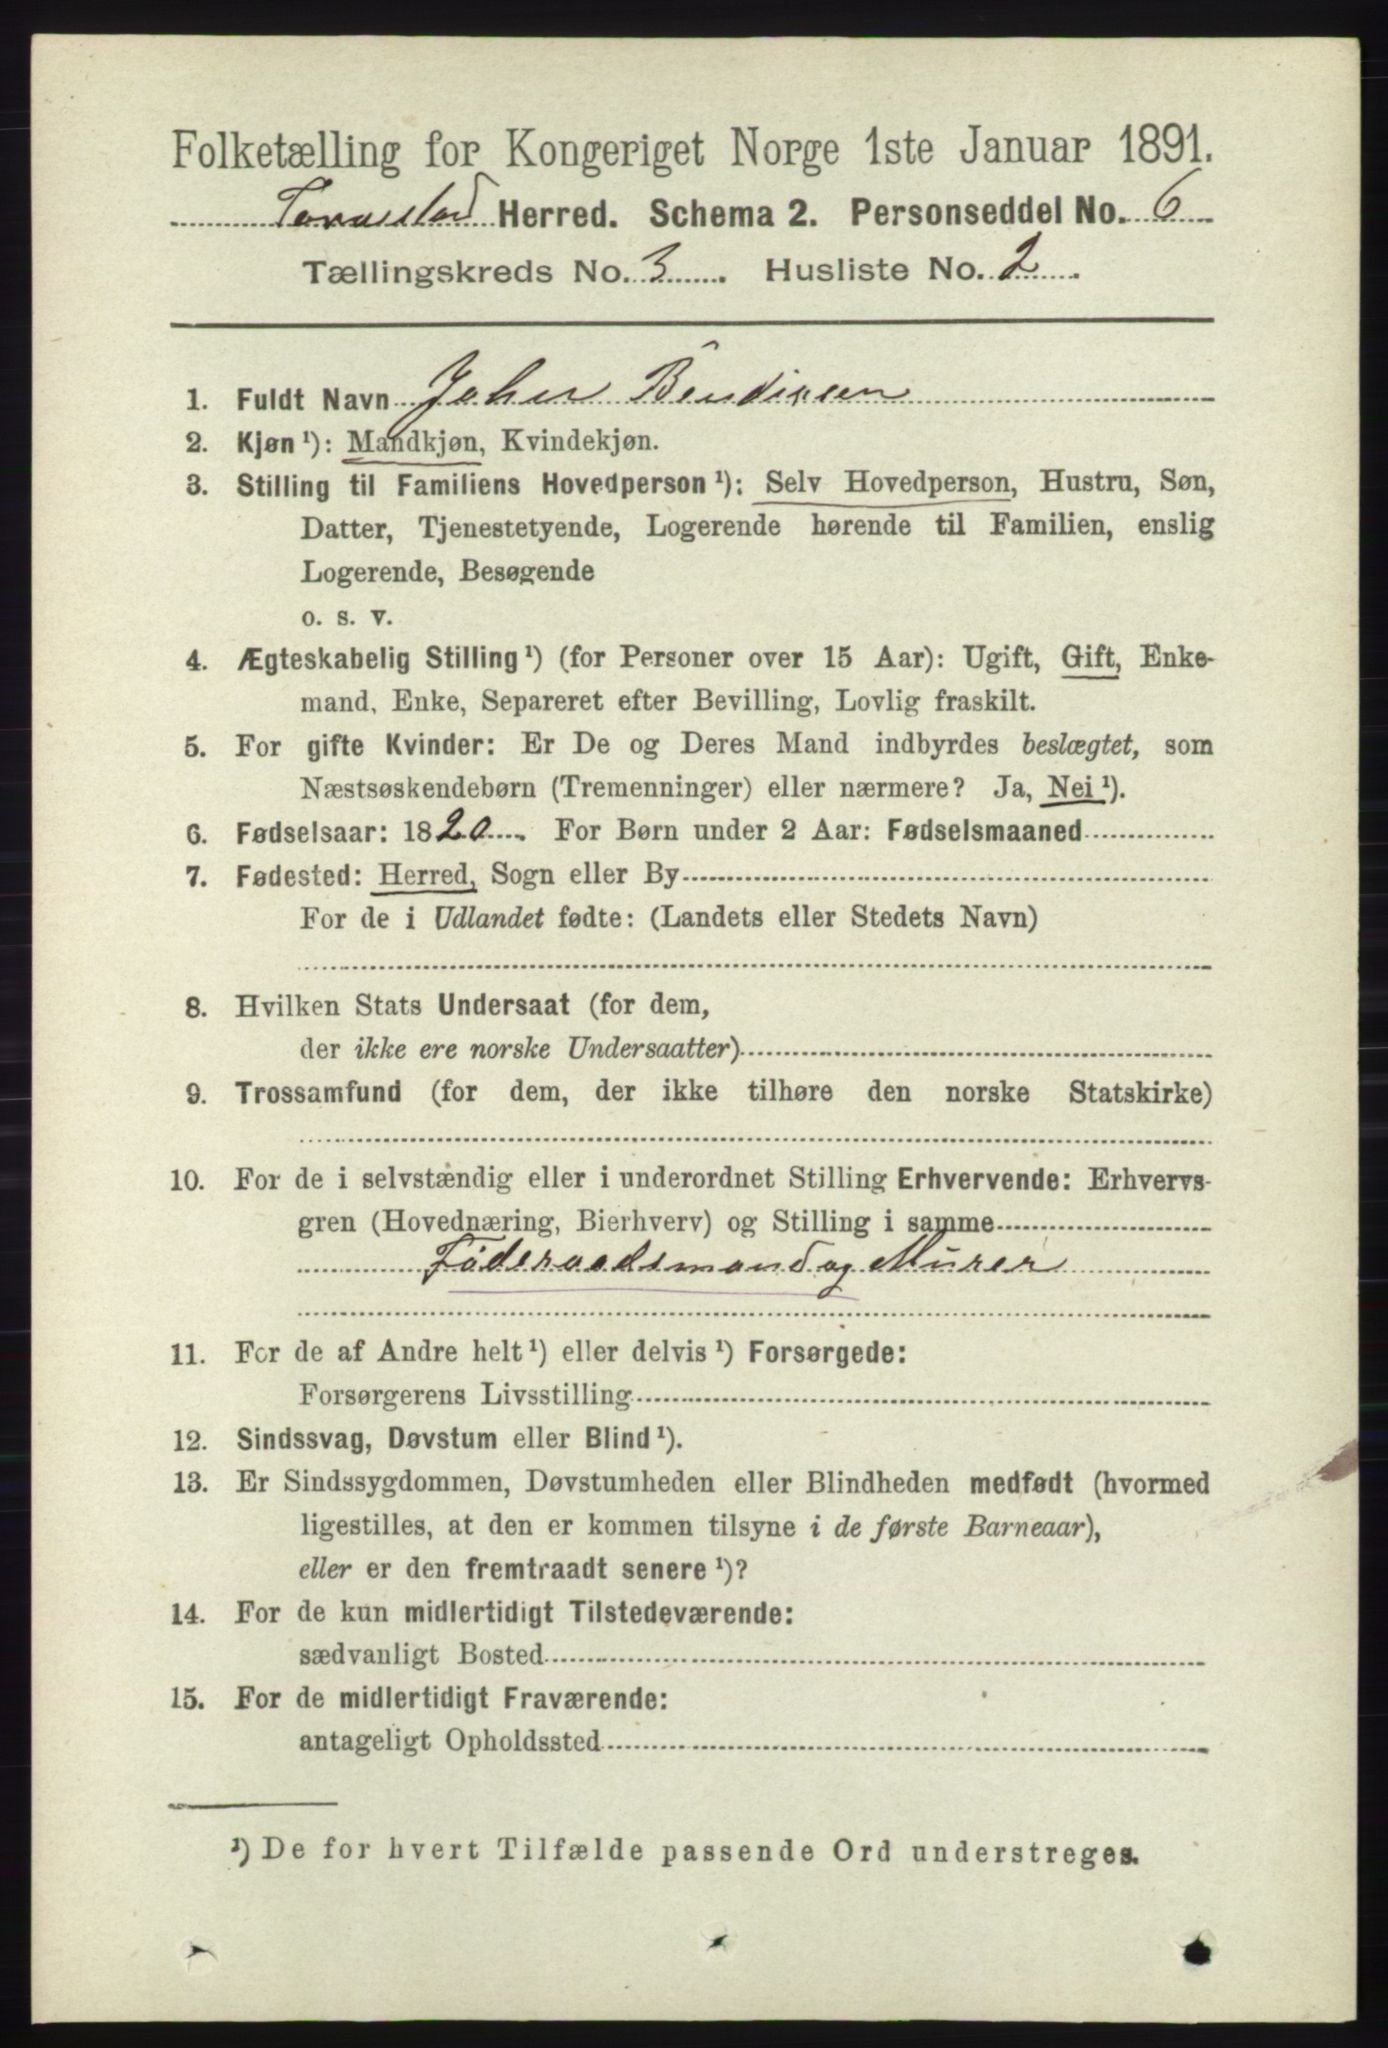 Folketælling for Kongeriget Norge 1ste Januar 1891.
Torvestad Herred. Schema 2. Personseddel No. 6
Tællingskreds No. 3 Husliste No. 2
1. Fuldt Navn Bendixen
2. Kjøn ¹): Mandkjøn, Kvindekjøn.
3. Stilling til Familiens Hovedperson ¹): Selv Hovedperson, Hustru, Søn,
Datter, Tjenestetyende, Logerende hørende til Familien, enslig
Logerende, Besøgende
o. s. v.
4. Ægteskabelig Stilling ¹) (for Personer over 15 Aar): Ugift, Gift, Enke-
mand, Enke, Separeret efter Bevilling, Lovlig fraskilt.
5. For gifte Kvinder: Er De og Deres Mand indbyrdes beslægtet, som
Næstsøskendebørn (Tremenninger) eller nærmere? Ja, Nei ¹).
6. Fødselsaar: 1820. For Børn under 2 Aar: Fødselsmaaned
7. Fødested: Herred, Sogn eller By
For de i Udlandet fødte: (Landets eller Stedets Navn)
8. Hvilken Stats Undersaat (for dem,
der ikke ere norske Undersaatter)
9. Trossamfund (for dem, der ikke tilhøre den norske Statskirke)
10. For de i selvstændig eller i underordnet Stilling Erhvervende: Erhvervs-
gren (Hovednæring, Bierhverv) og Stilling i samme
Føderaadsmand og Murer
11. For de af Andre helt ¹) eller delvis ¹) Forsørgede:
Forsørgerens Livsstilling
12. Sindssvag, Døvstum eller Blind ¹).
13. Er Sindssygdommen, Døvstumheden eller Blindheden medfødt (hvormed
ligestilles, at den er kommen tilsyne i de første Barneaar),
eller er den fremtraadt senere ¹)?
14. For de kun midlertidigt Tilstedeværende:
sædvanligt Bosted
15. For de midlertidigt Fraværende:
antageligt Opholdssted
¹) De for hvert Tilfælde passende Ord understreges.